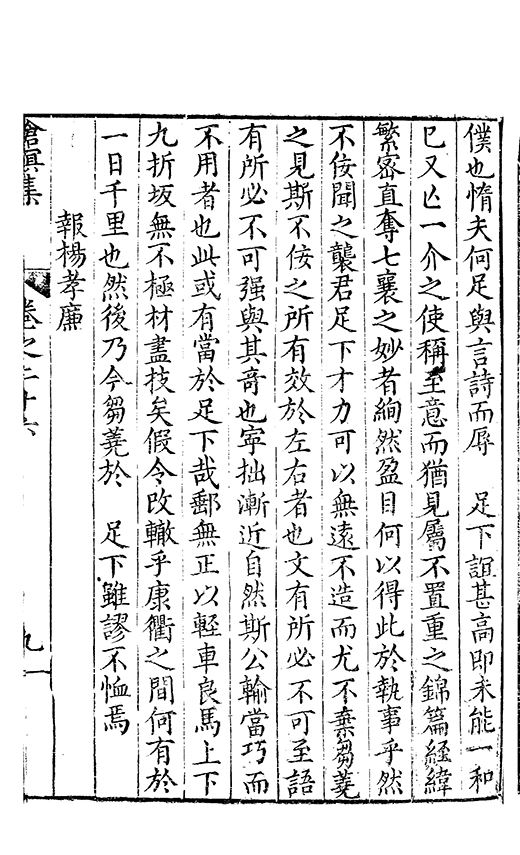 僕也惰夫何足與言詩而辱　足下誼甚高即未能一和
已又亡一介之使稱至意而猶見屬不置重之錦篇經緯
繁密直奪七襄之妙者絢然盈目何以得此於執事乎然
不佞聞之龔君足下才力可以無遠不造而尤不棄芻蕘
之見斯不佞之所有效於左右者也文有所必不可至語
有所必不可强與其奇也寧拙漸近自然斯公輸當巧而
不用者也此或有當於足下哉郵無正以輕車良馬上下
九折坂無不極材盡技矣假令改轍乎康衢之間何有於
一日千里也然後乃今芻蕘於　足下雖謬不恤焉
報楊孝廉
滄溟集
卷之二十六
九